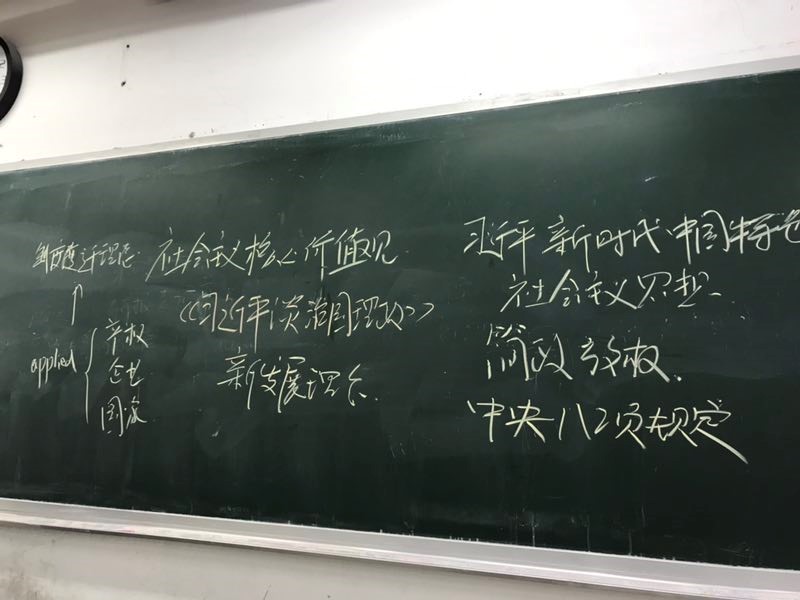 制度变迁理论
applied
产权
企业
国家
社会主义核心价值观
《习近平谈治国理政》
新发展理念
习近平新时代中国特色
社会主义思想
简政放权.
中央八项规定